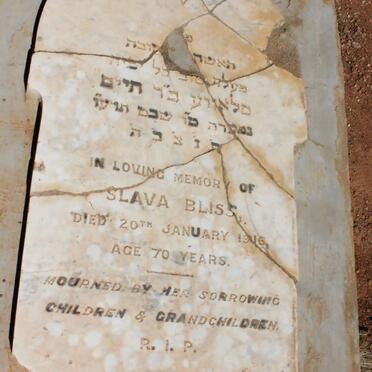 האשה
סלאוע בר חיים
נפטרה טו שבט תרעו
ת נ צ ב ה
IN LOVING MEMORY OF
SLAVA BLISS,
DIED 20TH JANUARY 1916,
AGE 70 YEARS.
MOURNED BY HER SORROWING
CHILDREN & GRANDCHILDREN.
R.I.P.